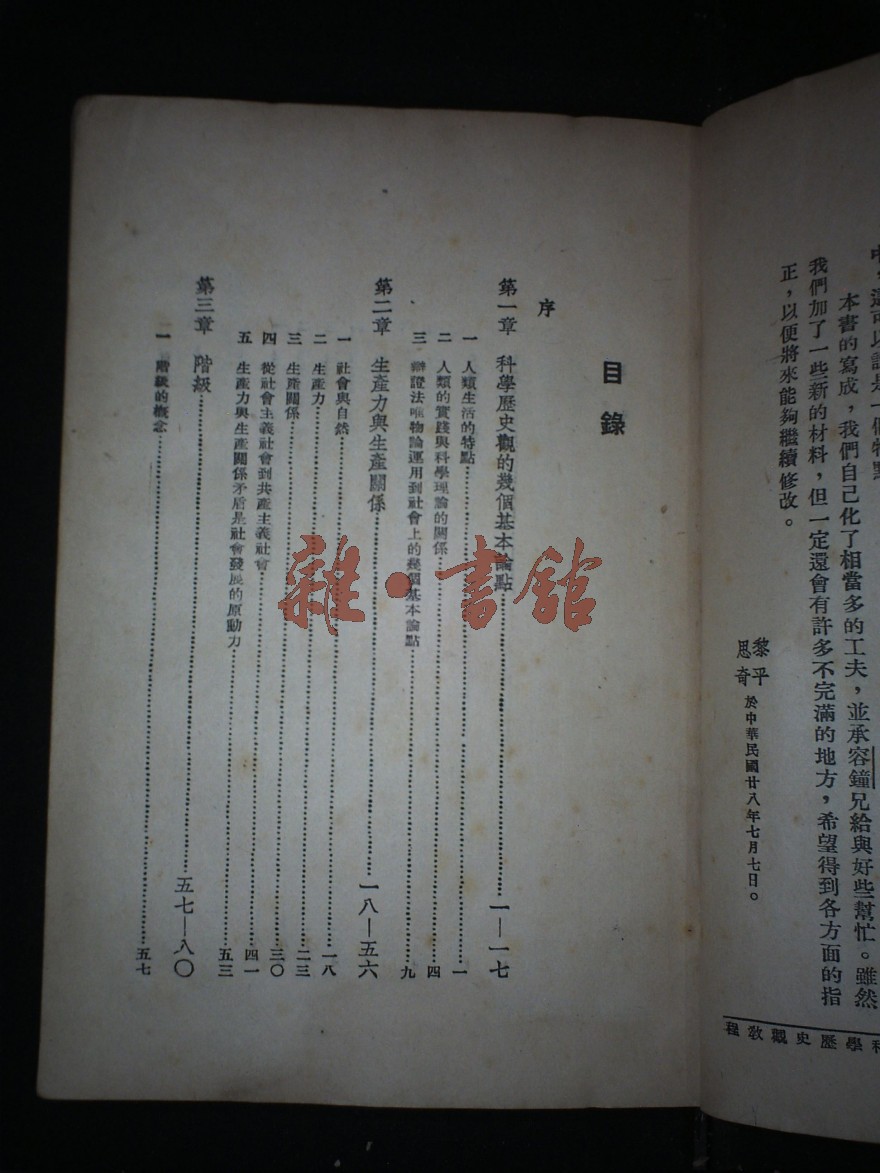 本書的寫成，我們自己化了相當多的工夫，並承容鐘兄給與好些幫忙。雖然
我們加了一些新的材料，但一定還會有許多不完滿的地方，希望得到各方面的指
正，以便將來能夠繼續修改。
黎平
思奇
於中華民國廿八年七月七日。
科學歷史觀教程
目錄
序
第一章 科學歷史觀的幾個基本論點 一—一七
一 人類生活的特點 一
二 人類的實踐與科學理論的關係 四
三 辯證法唯物論運用到社會上的幾個基本論點 九
第二章 生產力與生產關係 一八—五六
一 社會與自然 一八
二 生產力 二三
三 生產關係 三〇
四 從社會主義社會到共產主義社會 四一
五 生產力與生產關係矛盾是社會發展的原動力 五三
第三章 階級 五七—八〇
一 階級的概念 五七
雜·書館